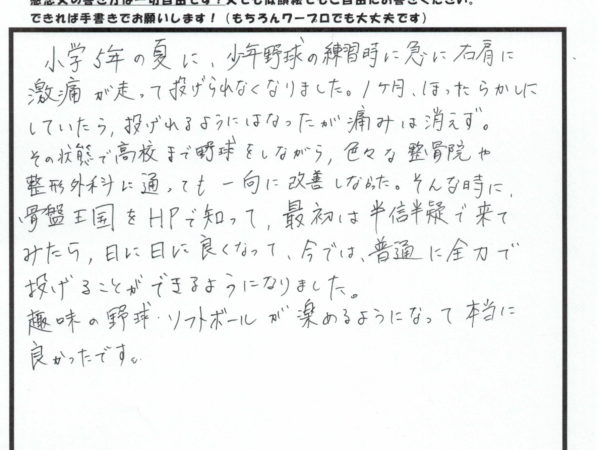 感想文の書き方は一切自由です！文でも似顔絵でもご自由にお書きください。
できれば手書きでお願いします！（もちろんワープロでも大丈夫です）
小学5年の夏に、少年野球の練習時に急に右肩に
激痛が走って投げられなくなりました。1ヶ月、ほったらかしに
していたら、投げれるようにはなったが痛みは消えず。
その状態で高校まで野球をしながら、色々な整骨院や
整形外科に通っても一向に改善しなかった。そんな時に、
骨盤王国をHPで知って、最初は半信半疑で来て
みたら、日に日に良くなって、今では、普通に全力で
投げることができるようになりました。
趣味の野球・ソフトボールが楽めるようになって本当に
良かったです。